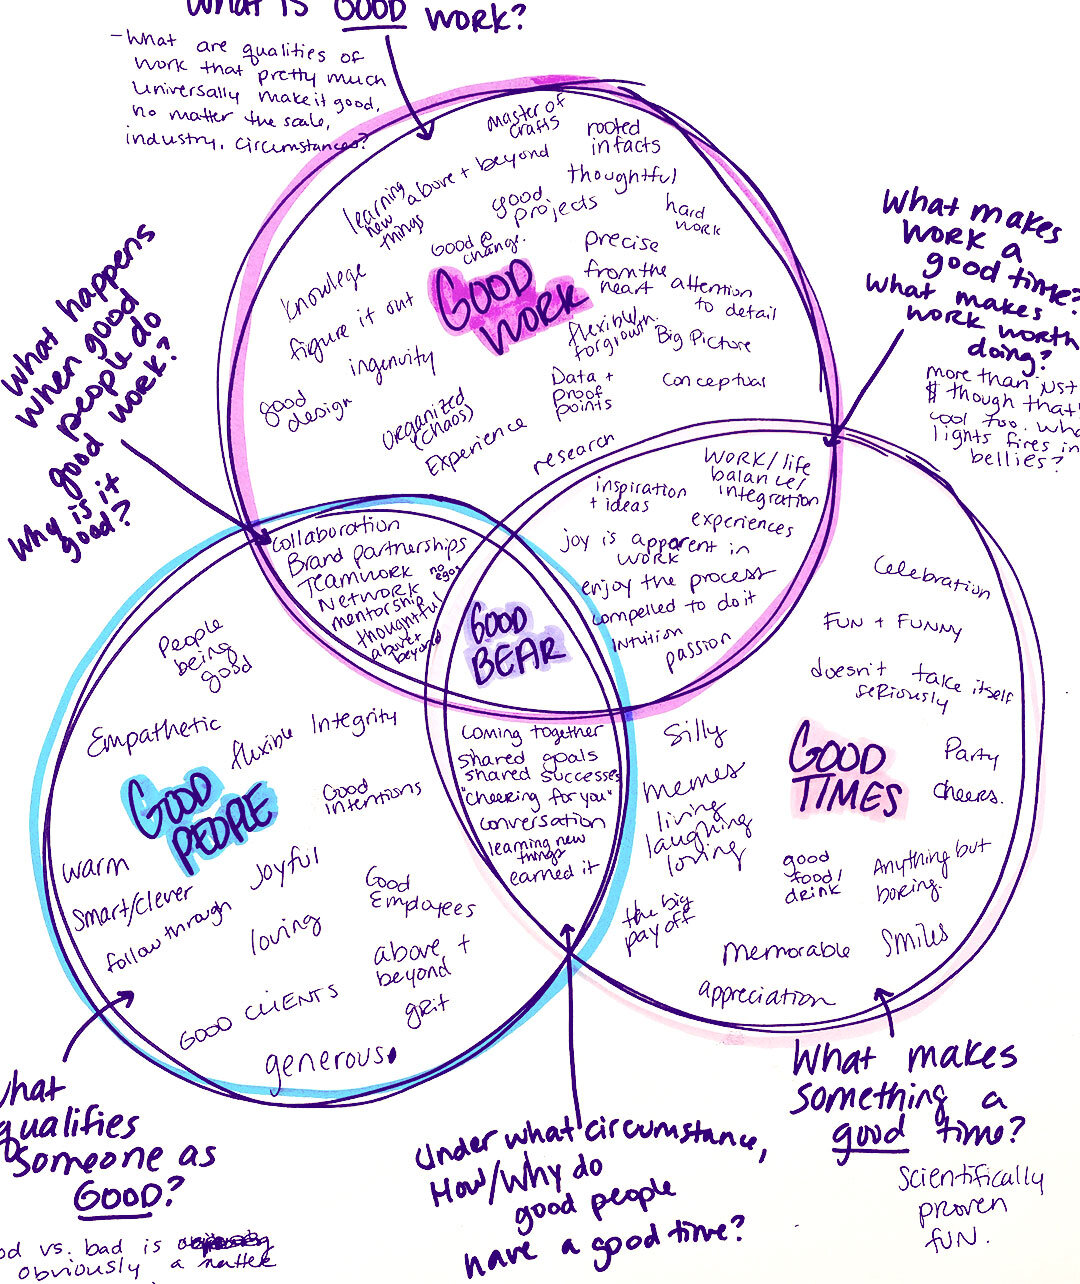 What is GOOD work?
- What are qualities of
work that pretty much
universally make it good,
no matter the scale,
industry, circumstances?
master of
crafts
rooted
in facts
above + beyond
thoughtful
learning
new
things
good
projects
hard
work
Good @
change.
precise
GOOD
WORK
from the
heart
attention
to detail
knowlege
figure it out
flexible/
for growth
Big Picture
ingenuity
Data +
proof
points
conceptual
good
design
organized
(chaos)
Experience
research
What happens
when good
people do
good work?
Why is it
good?
What makes
work a
good time?
What makes
work worth
doing?
more than just
$ though that's
cool too. what
lights fires in
bellies?
collaboration
Brand partnerships
Teamwork
no
egos
Network
mentorship
thoughtful
above +
beyond
work/life
balance/
integration
inspiration
+ ideas
experiences
joy is apparent in
work
enjoy the process
compelled to do it
intuition
passion
GOOD
BEAR
People
being
good
Empathetic
flexible
Integrity
GOOD
PEOPLE
Good
intentions
warm
Joyful
smart/clever
Good
Employees
follow through
loving
above +
beyond
GOOD CLIENTS
grit
generous
coming together
shared goals
shared successes
"cheering for you"
conversation
learning new
things
earned it
Celebration
FUN + FUNNY
doesn't take itself
seriously
silly
GOOD
TIMES
Party
memes
cheers.
living
laughing
loving
good
food/
drink
Anything but
boring.
the big
pay off
memorable
smiles
appreciation
What
qualifies
someone as
GOOD?
vs. bad is
obviously a matter
Under what circumstance,
How/Why do
good people
have a good time?
What makes
something a
good time?
Scientifically
proven
fun.